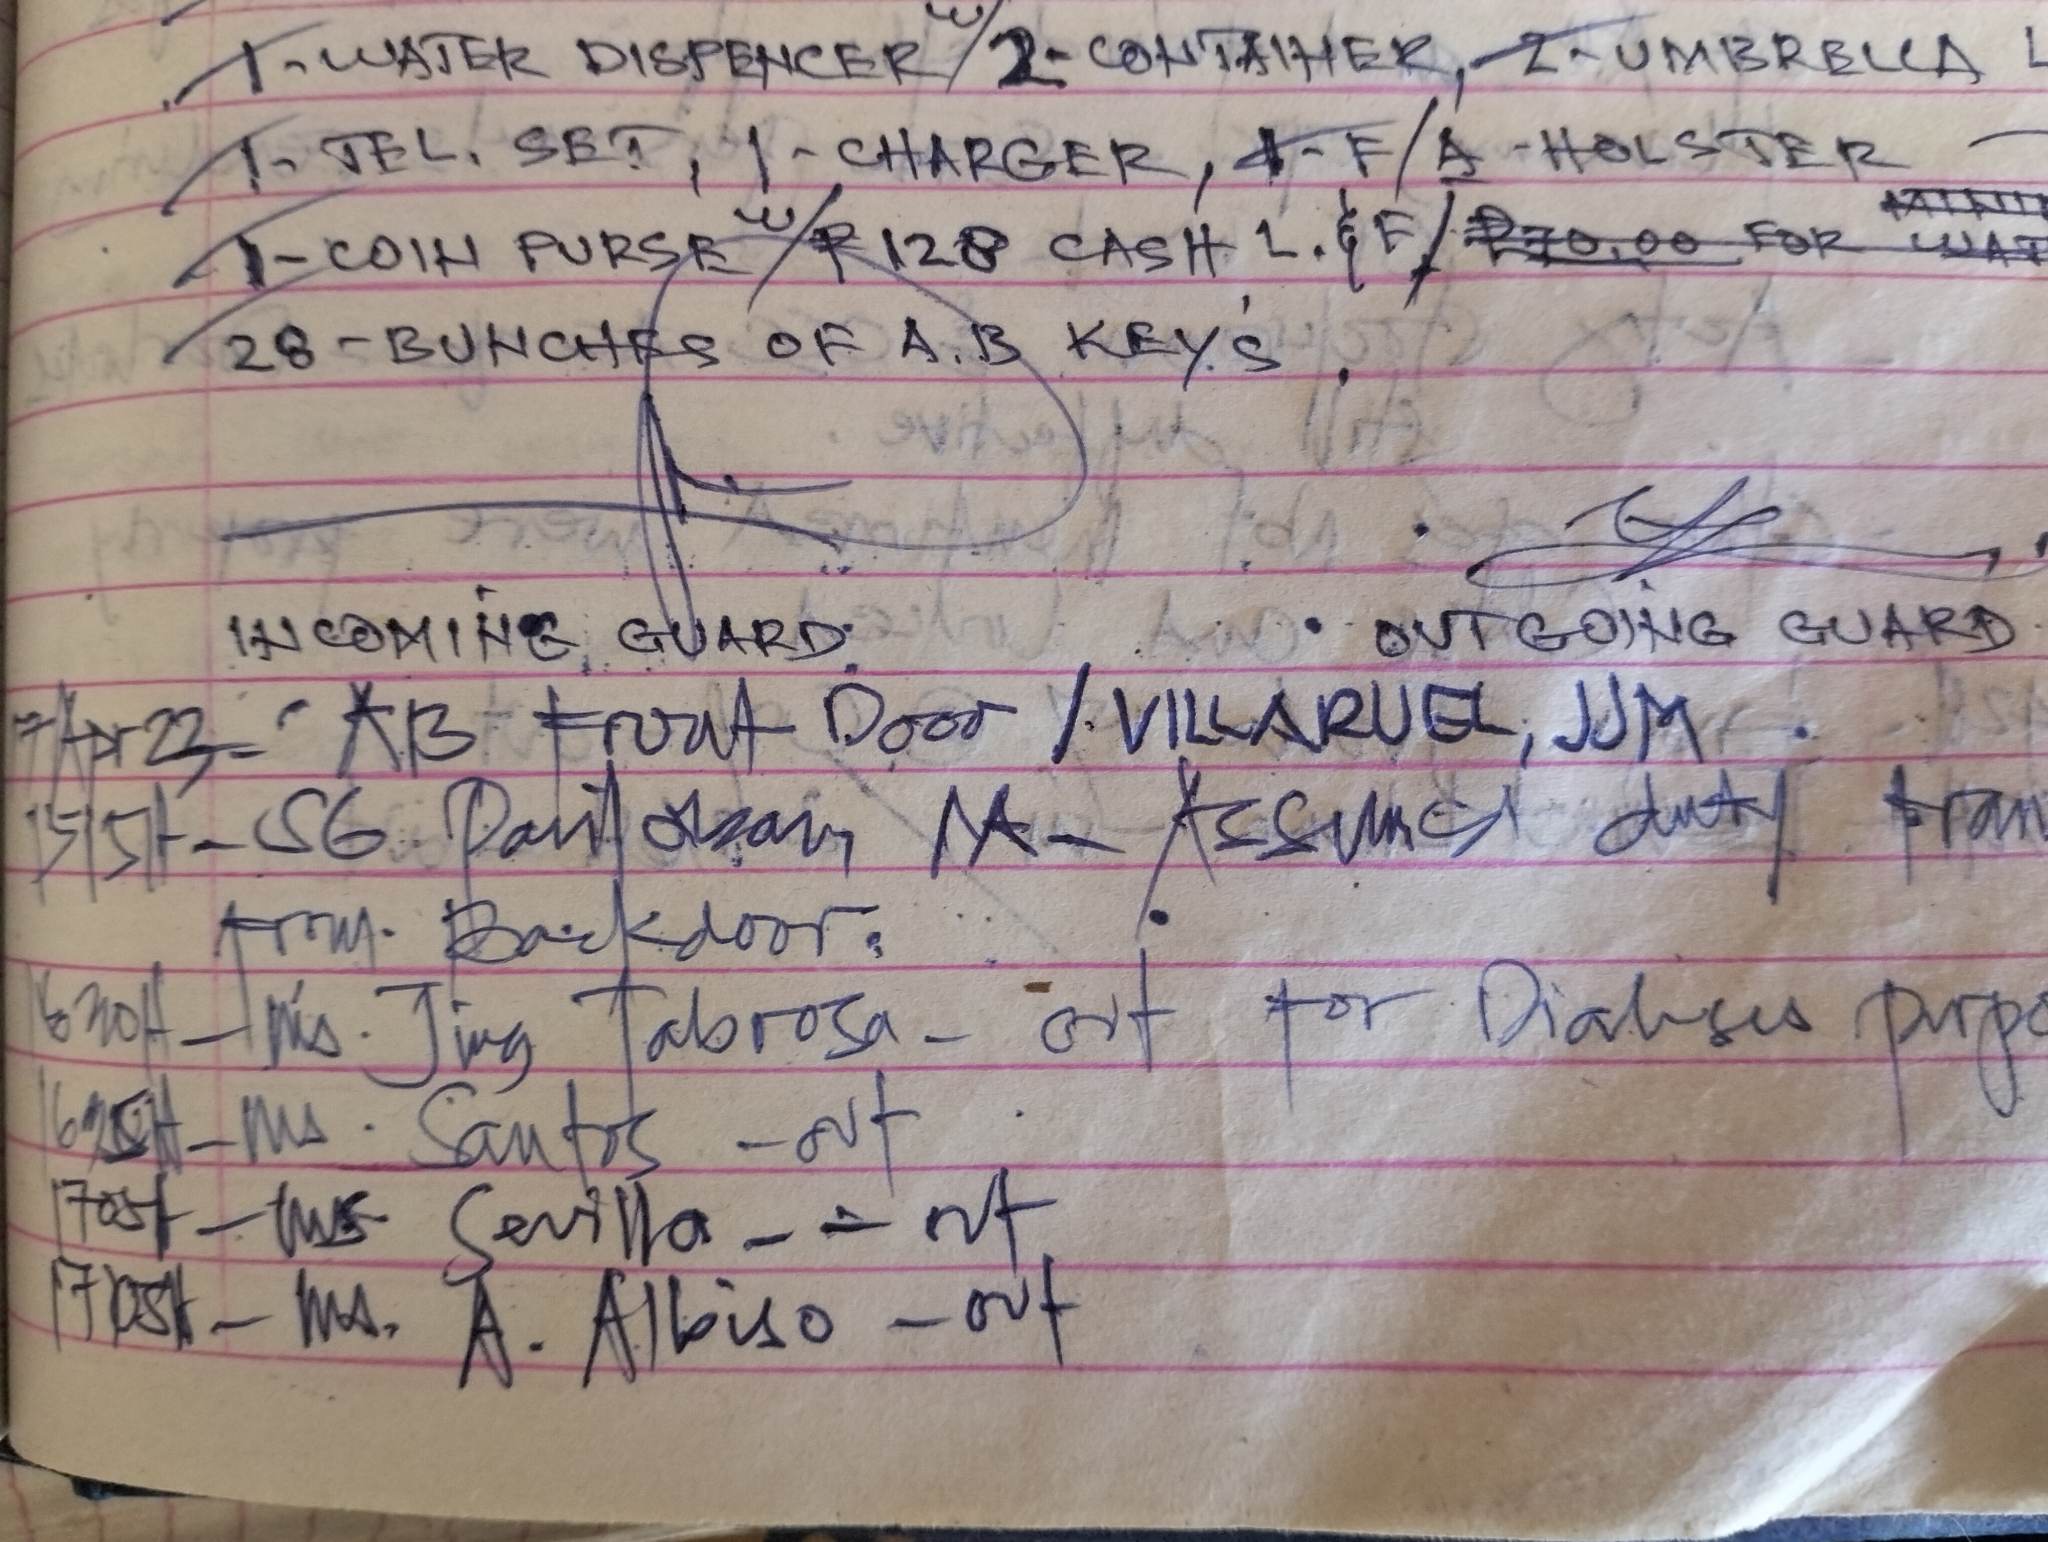 1-WATER DISPENCER W/2-CONTAINER, 2-UMBRELLA L
1-TEL. SET, 1-CHARGER, 1-F/A-HOLSTER
1-COIN PURSE W/₱128 CASH L.&F/ ₱70.00 FOR WAT
28-BUNCHES OF A.B KEY'S.
INCOMING GUARD. OUTGOING GUARD
Apr 23 - AB Front Door / VILLARUEL, JJM.
1515H - SG M - Assumed duty
from Backdoor.
1620H - Ms. Jing Tabrosa - out for Dialysis purpo
Ms. Santos - out
1705H - Ms Sevilla - - out
1705H - Ms. A. Albiso - out